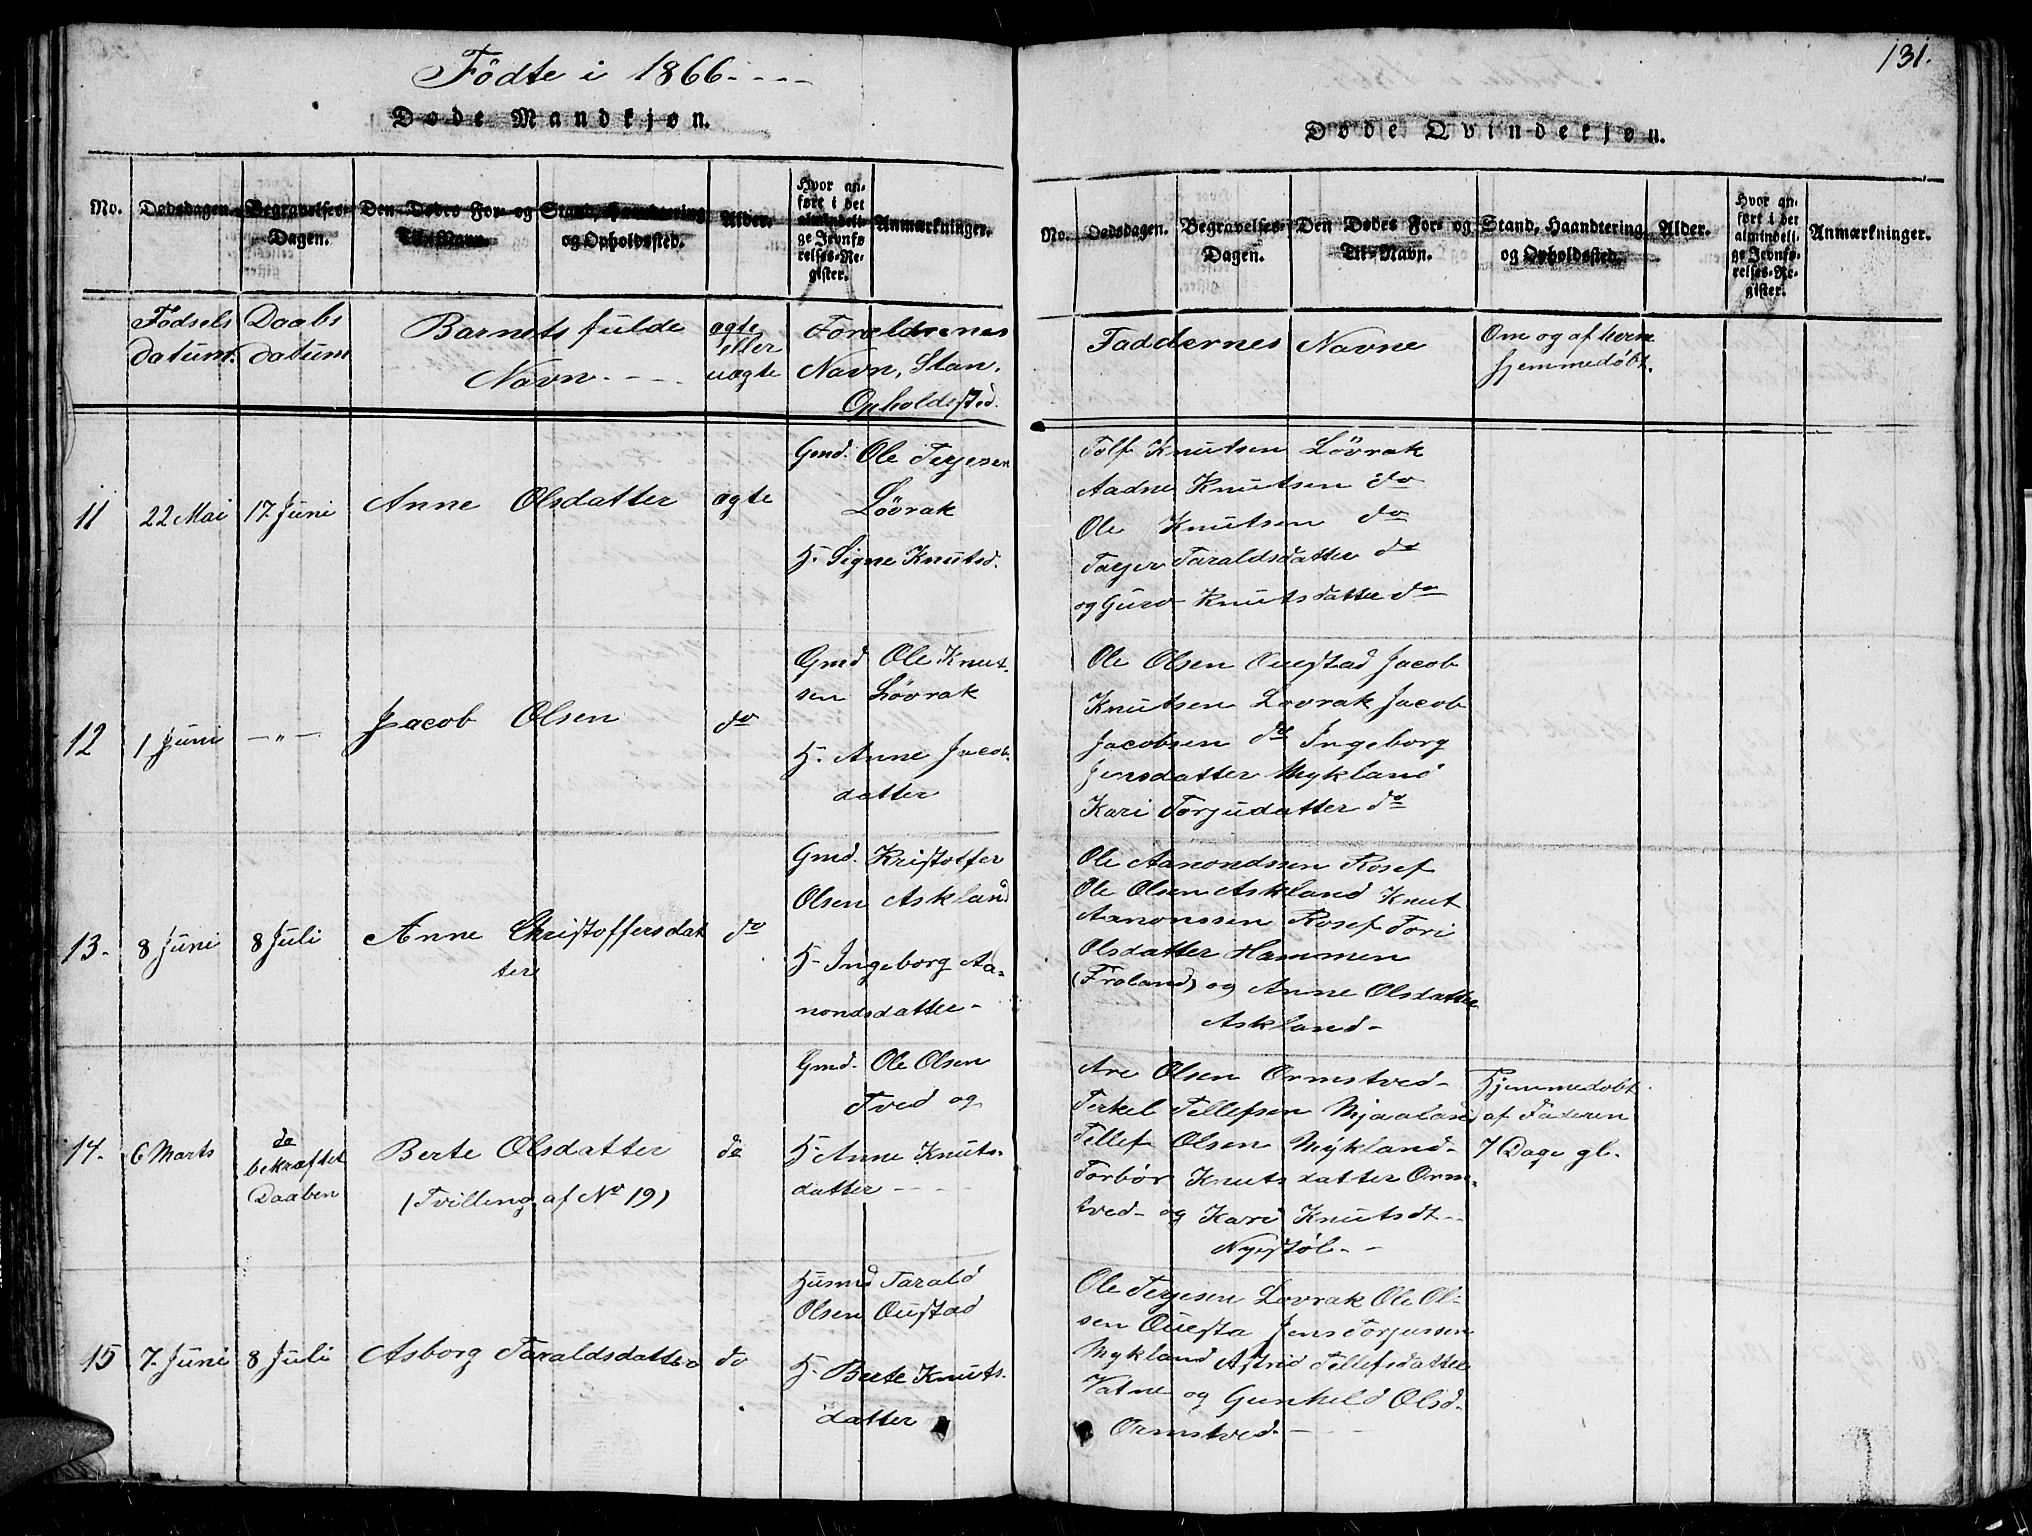 Födte i 1866.
131.
Døde Mandkjøn.
Døde Qvindekjøn.
No.
Dødsdagen.
Begravelses-
Dagen.
Den Dødes For- og
Til-Navn.
Stand, Haandtering
og Opholdssted.
Alder.
Hvor an-
ført i det
almindeli-
ge Jevnfø-
relses-Re-
gister.
Anmærkninger.
No.
Dødsdagen.
Begravelses-
Dagen.
Den Dødes For- og
Til-Navn.
Stand, Haandtering
og Opholdssted.
Alder.
Hvor an-
ført i det
almindeli-
ge Jevnfø-
relses-Re-
gister.
Anmærkninger.
Födsels
datum.
Daabs
datum
Barnets fulde
Navn.
ægte
eller
uægte
Forældrenes
Navn, Stan,
Opholdssted.
Faddernes Navne
Om og af hvem
hjemmedöbt.
11
22 Mai
17 Juni
Anne Olsdatter
ægte
Gmd. Ole Terjesen
Lövrak
H. Signe Knutsd.
Tolf Knutsen Lövrak
Aadne Knutsen do
Ole Knutsen do
Taejer Taraldsdatter do
og Guro Knutsdatter do
12
1 Juni
-„-
Jacob Olsen
do
Gmd Ole Knut-
sen Lövrak
H. Anne Jacob-
datter
Ole Olsen Ouestad Jacob
Knutsen Lovrak Jacob
Jacobsen do Ingeborg
Jensdatter Mykland
Kari Torjudatter do
13.
8 Juni
8 Juli
Anne Christoffersdat
ter
do
Gmd. Kristoffer
Olsen Askland
H- Ingeborg Aa-
nondsdatter-
Ole Aanondssen Rosef
Ole Olsen Askland Knut
Aanonssen Rosef Tori
Olsdatter Hammen
(Froland) og Anne Olsdatter
Askland-
14.
6 Marts
do
bekræftet
Daaben
Berte Olsdatter
(Tvilling af No 19)
do
Gmd- Ole Olsen
Tved og
H- Anne Knuts-
datter
Are Olsen Ormstved-
Terkel Tellefsen Mjaaland
Tellef Olsen Mykland-
Torbör Knutsdatter Orm-
tved- og Kari Knutsdt-
Nyestöl-
Hjemmedobt
af Faderen
7 Dage gl.
15
7. Juni
8 Juli
Asborg Taraldsdatter
do
Husmd Tarald
Olsen Oustad
H- Berte Knuts-
datter
Ole Terjesen Lovrak Ole Ol-
sen Ouesta Jens Torjussen
Mykland Astrid Tellefsdatter
Vatne og Gunhild Olsd-
Ormstved-